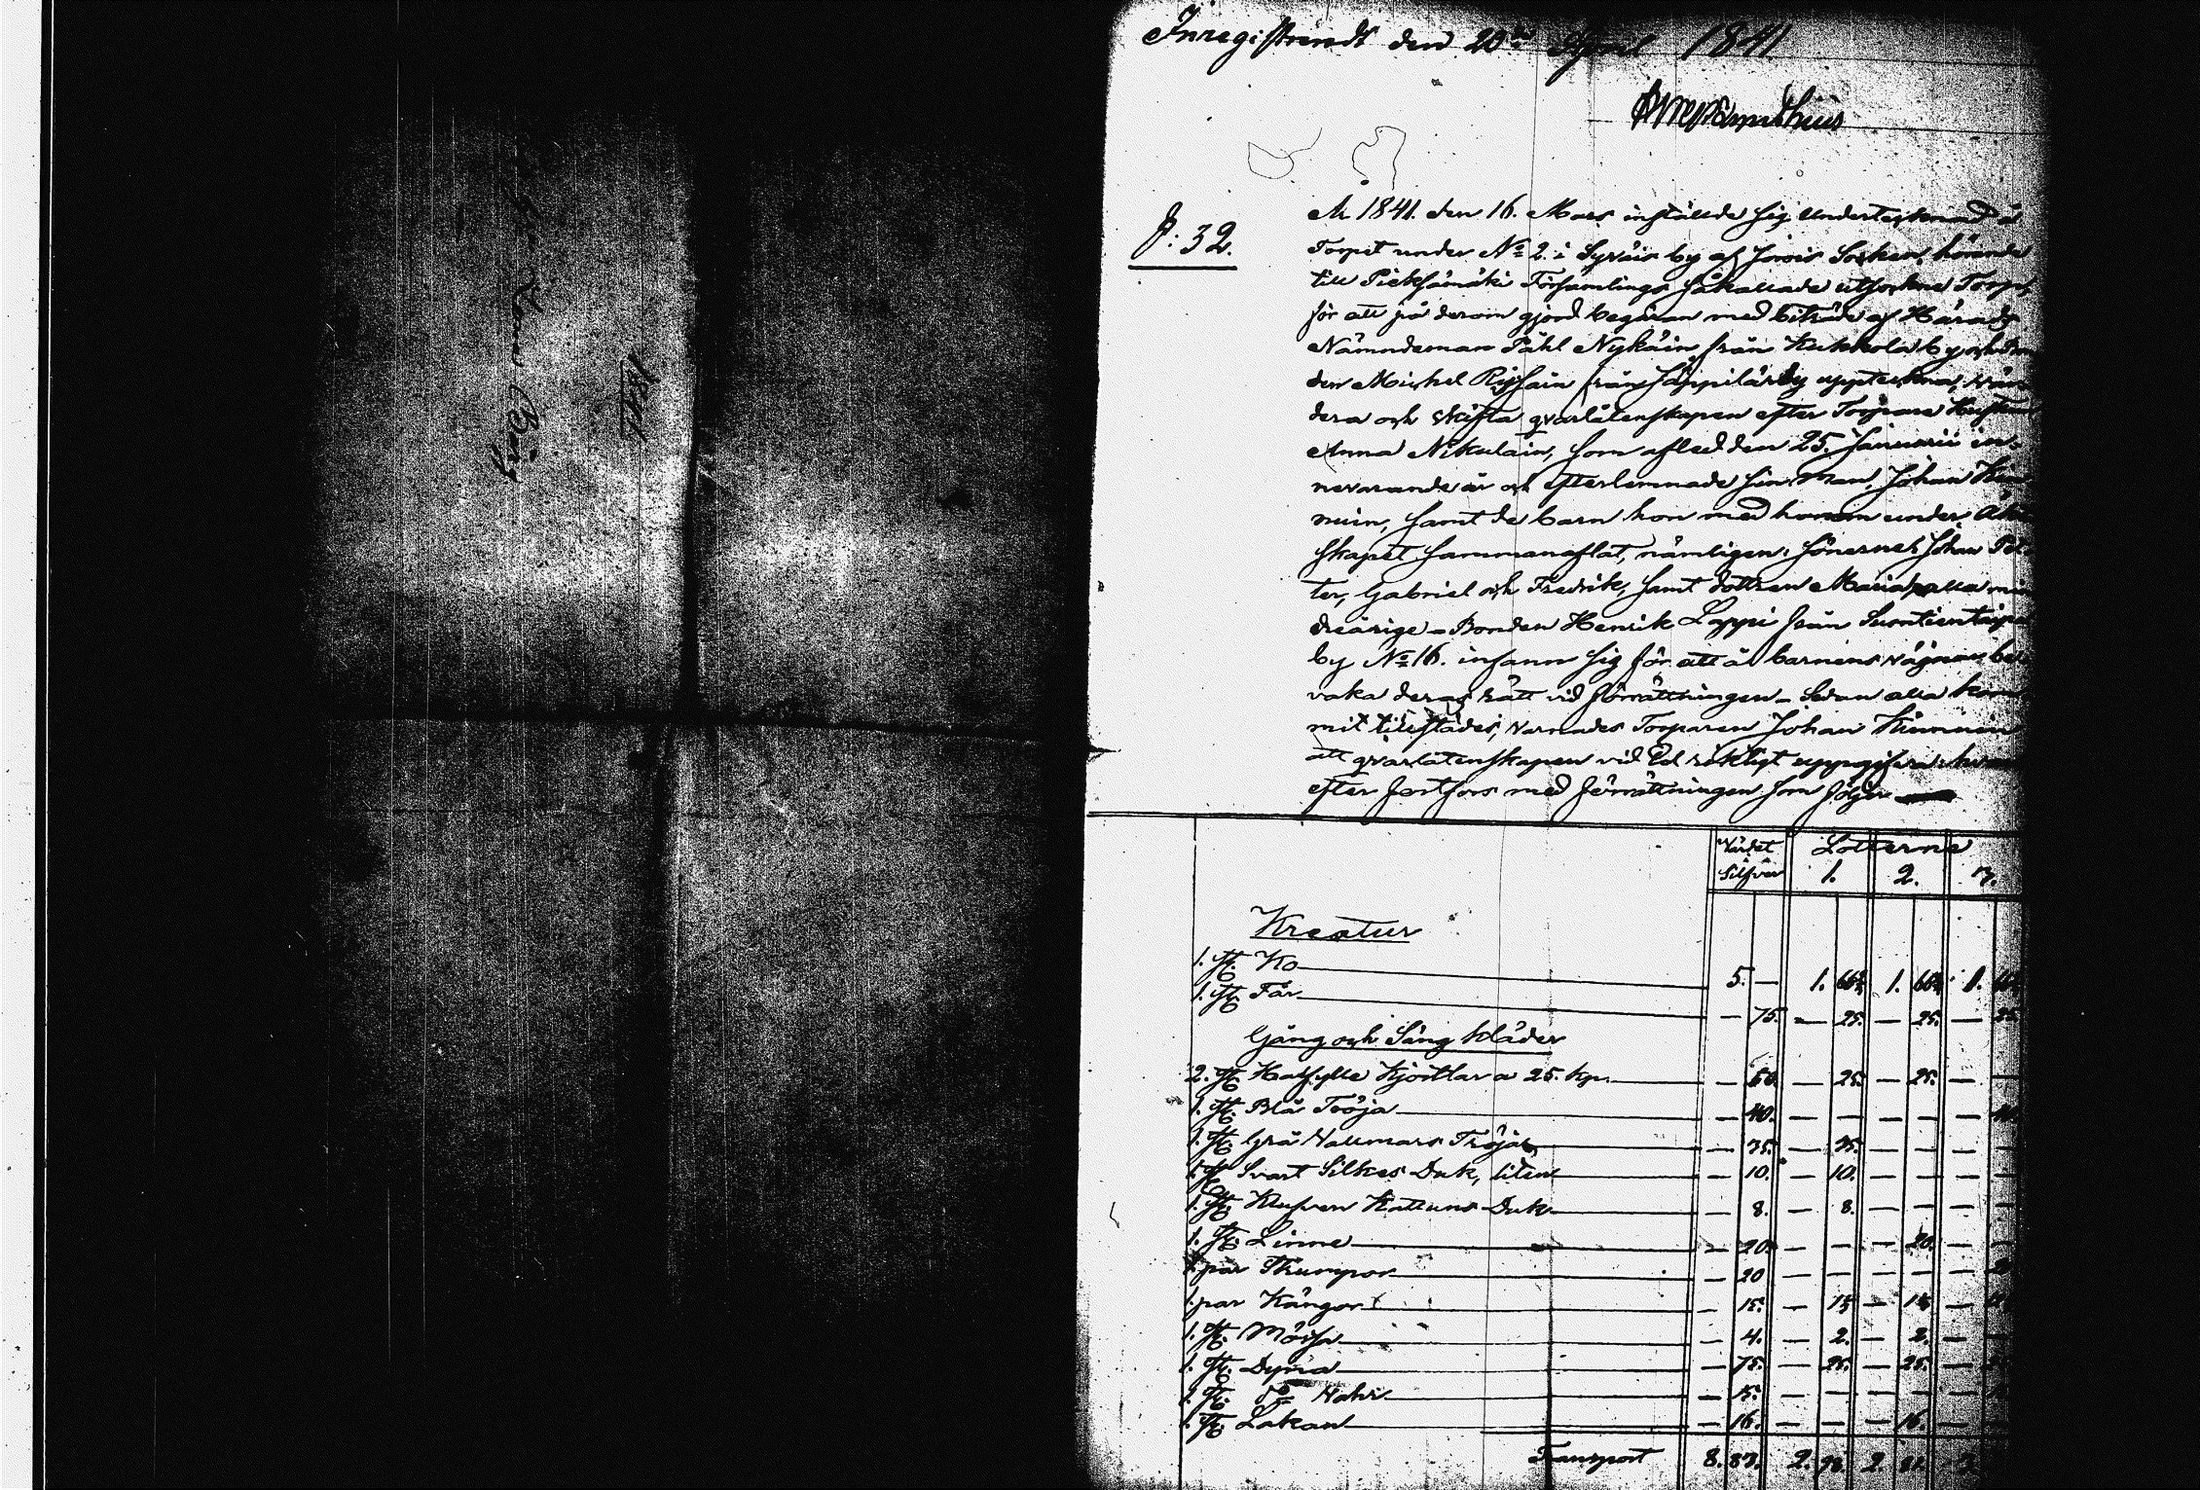 1841
Inregistreradt den 20de April 1841.
§: 32.
År 1841. den 16. Mars inställde sig undertecknad å
Torpet under No 2. i Syväis by af Jorois Socken, hörande
till Pieksämäki Församlings så kallade utsockne Torp,
för att på derom gjord begäran med biträde af Härads
Nämndeman Påhl Nykäin från Kukkola by och
den Michel från Säppilä by uppteckna, vär-
dera och skifta qvarlåtenskapen efter Torpare Hustrun
Anna Nikulain, som afled den 25. Januarii in-
nevarande år och efterlemnade sin Man, Johan
nuin, samt de barn hon med honom under Äkten
skapet sammanaflat, nämligen: Sönerne Johan Pet-
ter, Gabriel och Fredrik, samt dottren Maria, alla min
dreårige – Bonden Henrik Lappi från Suontientaipal
by No 16. infann sig för att å barnens vägnar be-
vaka deras rätt vid förrättningen – Sedan alla kom
mit tillstädes, varnades Torparen Johan
att qvarlåtenskapen vid Ed riktigt uppgifva: hvar
efter fortfors med förrättningen som följer
Värdet Silfver Lotterne
1. 2. 3.
Kreatur
1. st. Ko 5. — 1. 66⅔ 1. 66⅔ 1.
1. st. Får — 75. — 25. — 25. — 25.
Gång och Säng kläder
2. st. Halfylle Kjortlar a 25. kp. — 50. — 25. — 25. — —
1. st. Blå Tröja — 40. — — — — — 40.
1. st. Grå Vallmars Tröja — 35. — 35. — — — —
1. st. Svart Silkes Duk, liten — 10. — 10. — — — —
1. st. Kattuns Duk — 8. — 8. — — — —
1. st. Linne — 20. — — — 20. — —
1. par Strumpor — 20 — — — — —
1. par Kängor — 15. — 15 — 15 —
1. st. Mössa — 4. — 2. — 2. — —
1. st. Dyna — 75. — 25. — 25. — 25
1. st. Do — 15. — — — — —
1. st. Lakan — 16. — — — 16. — —
Transport 8. 83. 2. 2.